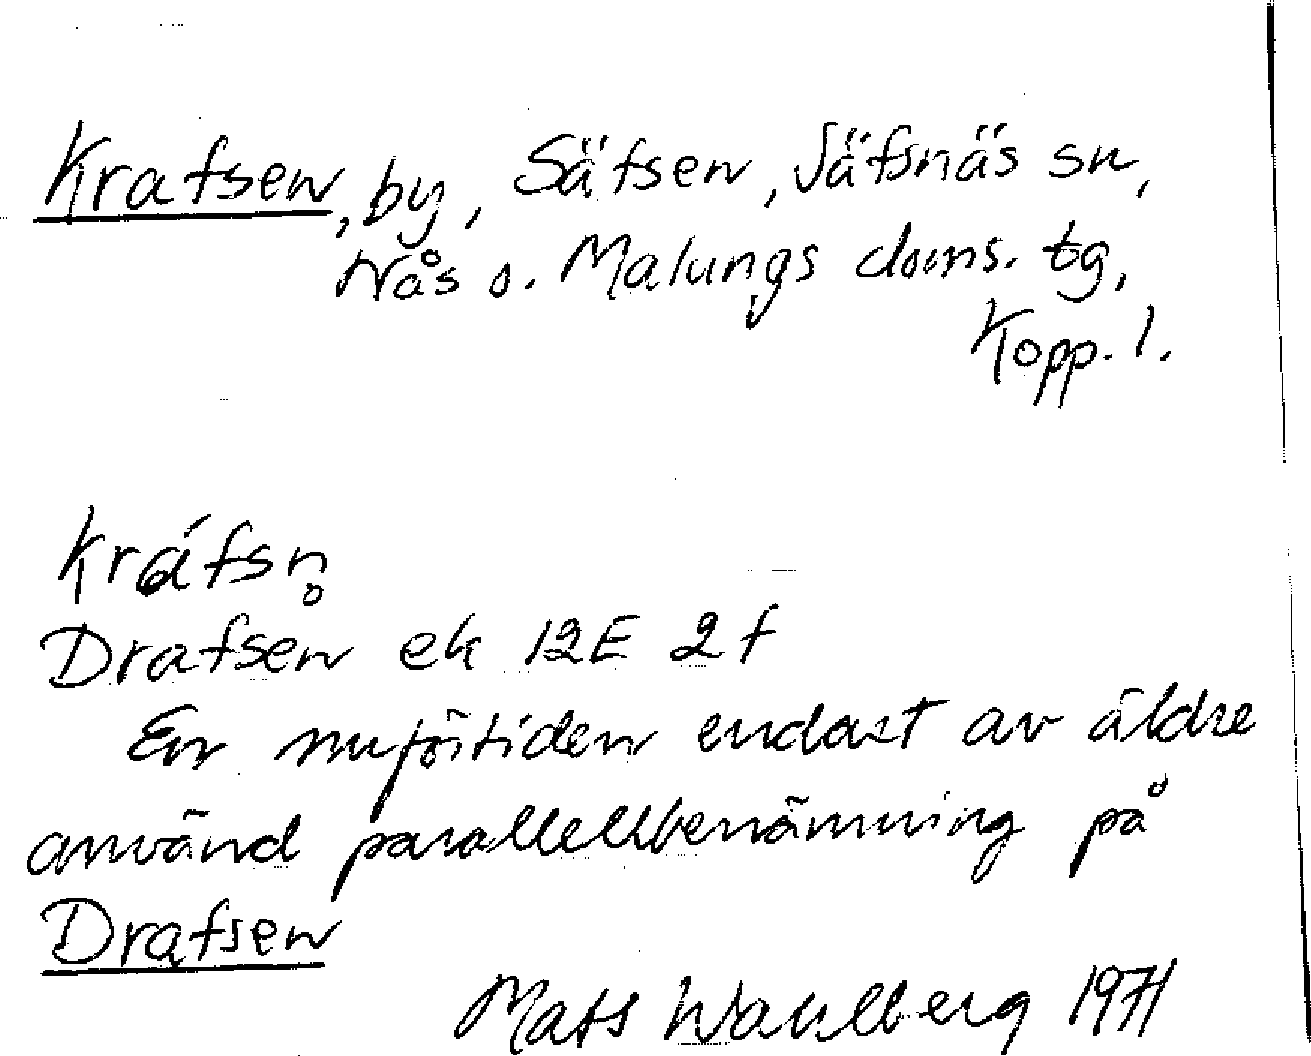 Kratsen, by, Sätsen, Säfsnäs sn,
Nås o. Malungs doms. tg,
Kopp. l.
Kráfsn̥
Drafsen ek 12E 2f
En nuförtiden endast av äldre
använd parallellbenämning på
Drafsen
Mats Wahlberg 1971